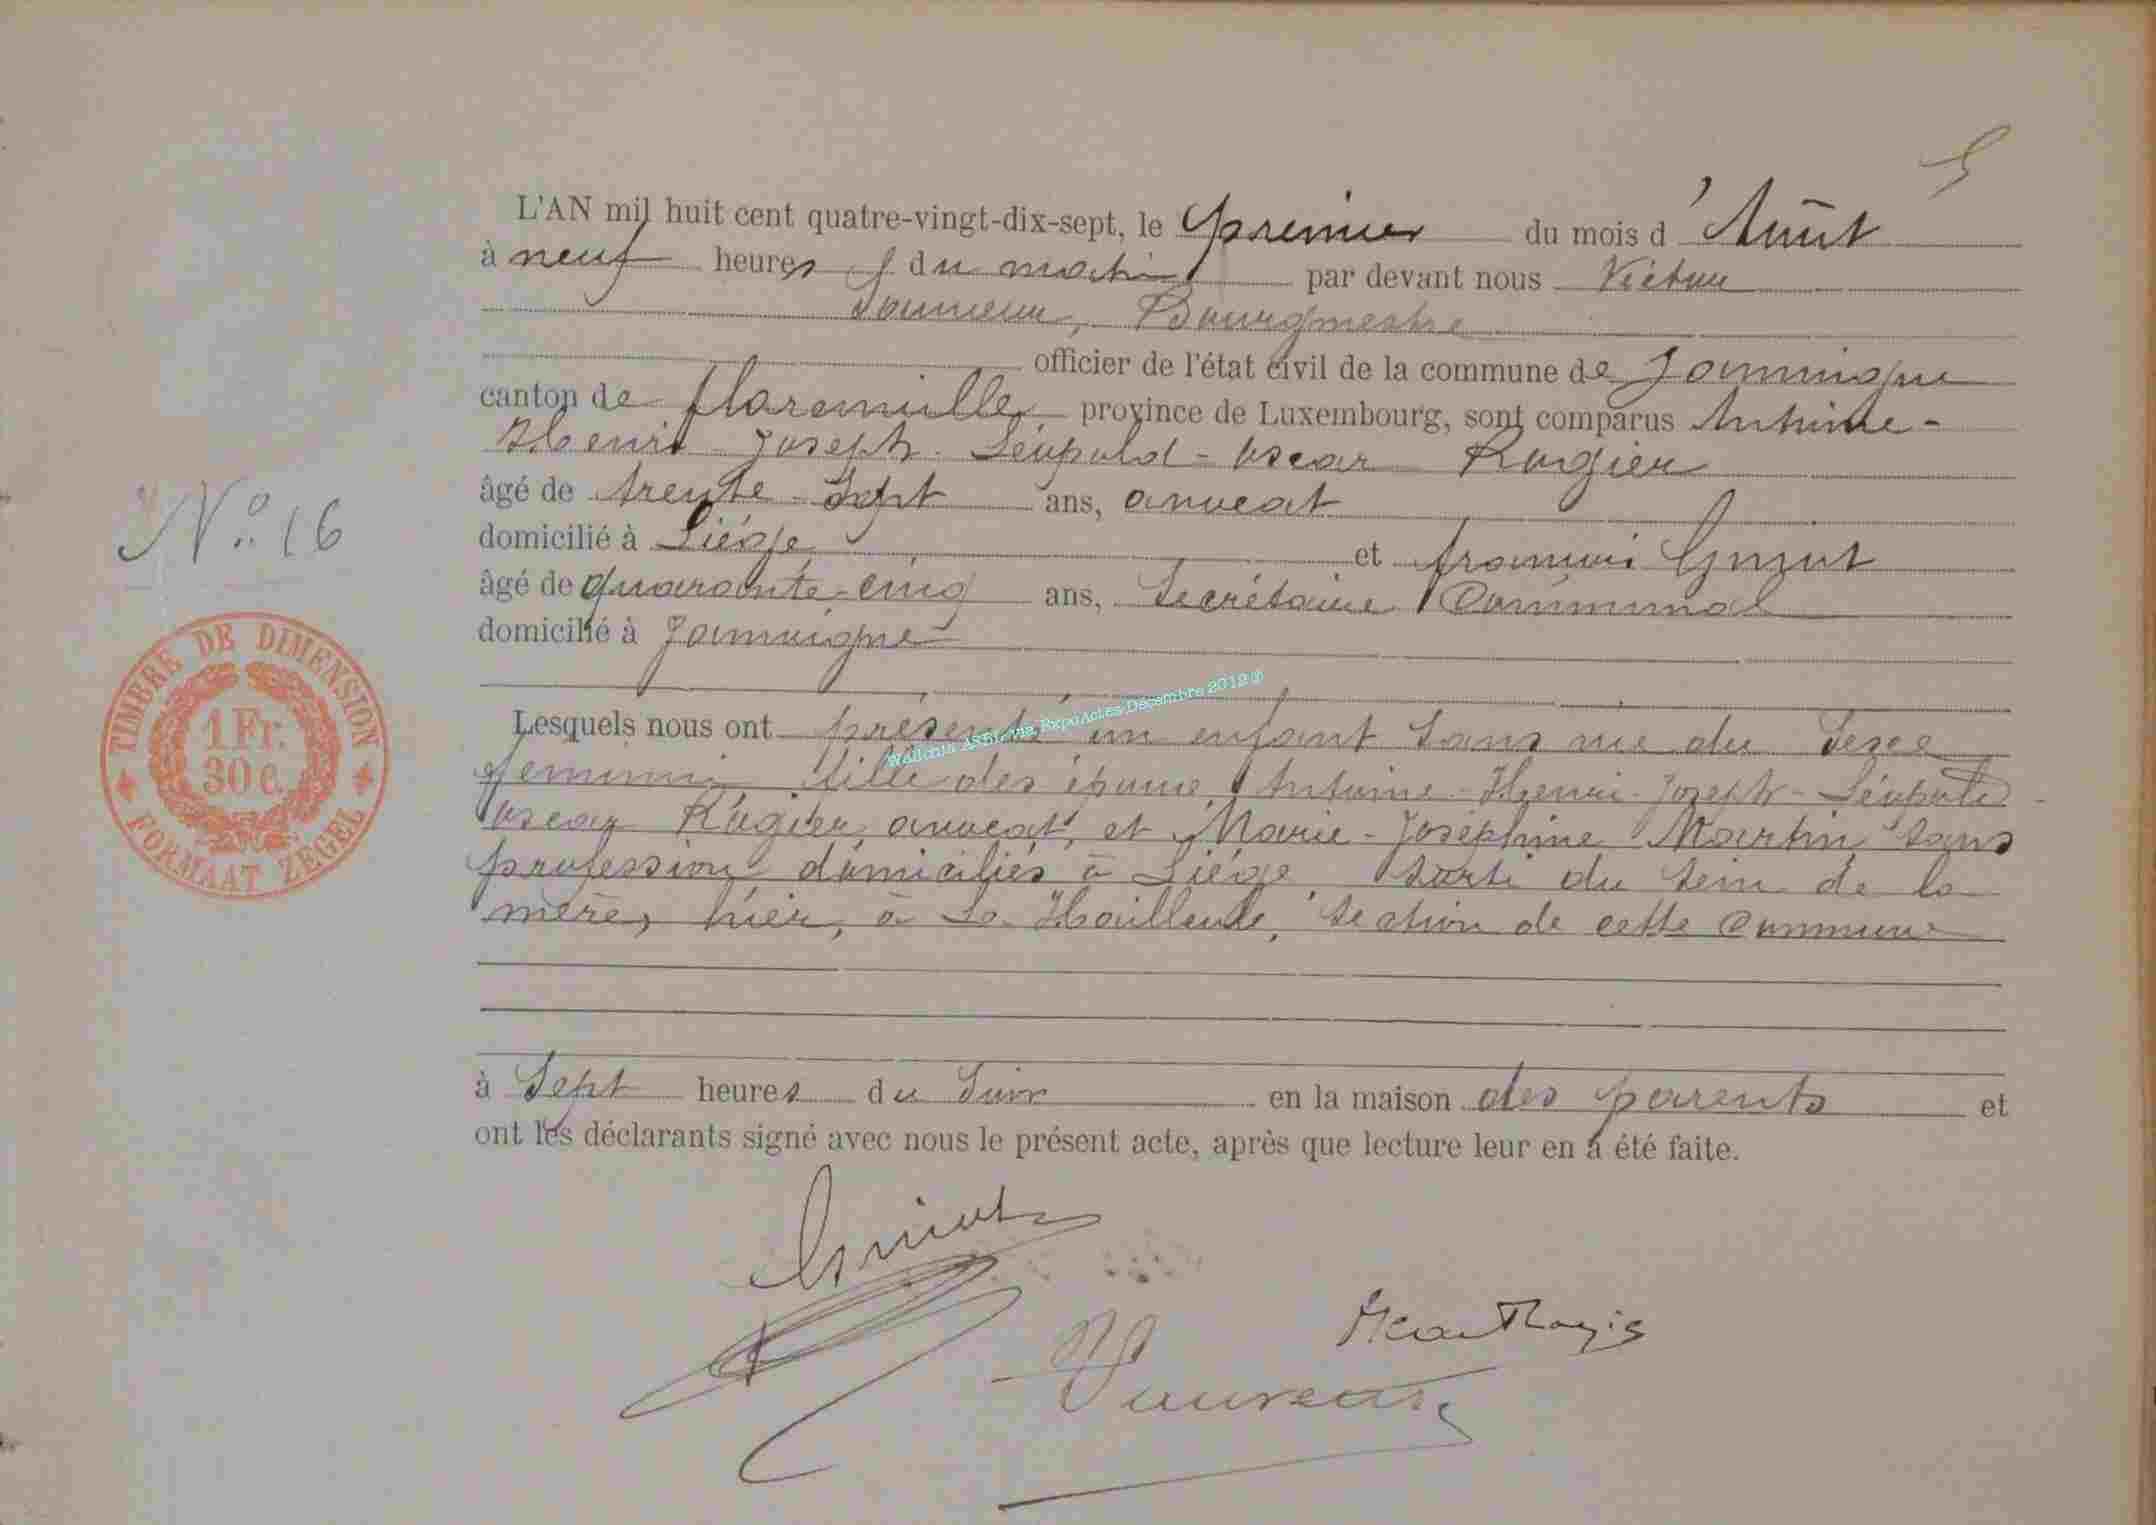 L'AN mil huit cent quatre-vingt-dix-sept, le premier du mois d'Août
à neuf heures du matin par devant nous Victor
Bourgmestre
officier de l'état civil de la commune de Jamoigne
canton de florenville province de Luxembourg, sont comparus Antoine-
Henri-Joseph-Léopold-Oscar Rogier
âgé de trente-sept ans, avocat
domicilié à Liége et françois
N° 16
âgé de quarante-cinq ans, Secrétaire Communal
domicilié à Jamoigne
TIMBRE DE DIMENSION
1 Fr.
30 C.
FORMAAT ZEGEL
Wallonia ASBL via ExpoActes Décembre 2012 @
Lesquels nous ont présenté un enfant sans vie du sexe
féminin fille des époux Antoine-Henri-Joseph-Léopold-
Oscar Rogier, avocat, et Marie-Joséphine Martin, sans
profession domiciliés à Liége, sorti du sein de la
mère, hier, à La Hailleule, section de cette commune
à Sept heures du Soir en la maison des parents et
ont les déclarants signé avec nous le présent acte, après que lecture leur en a été faite.